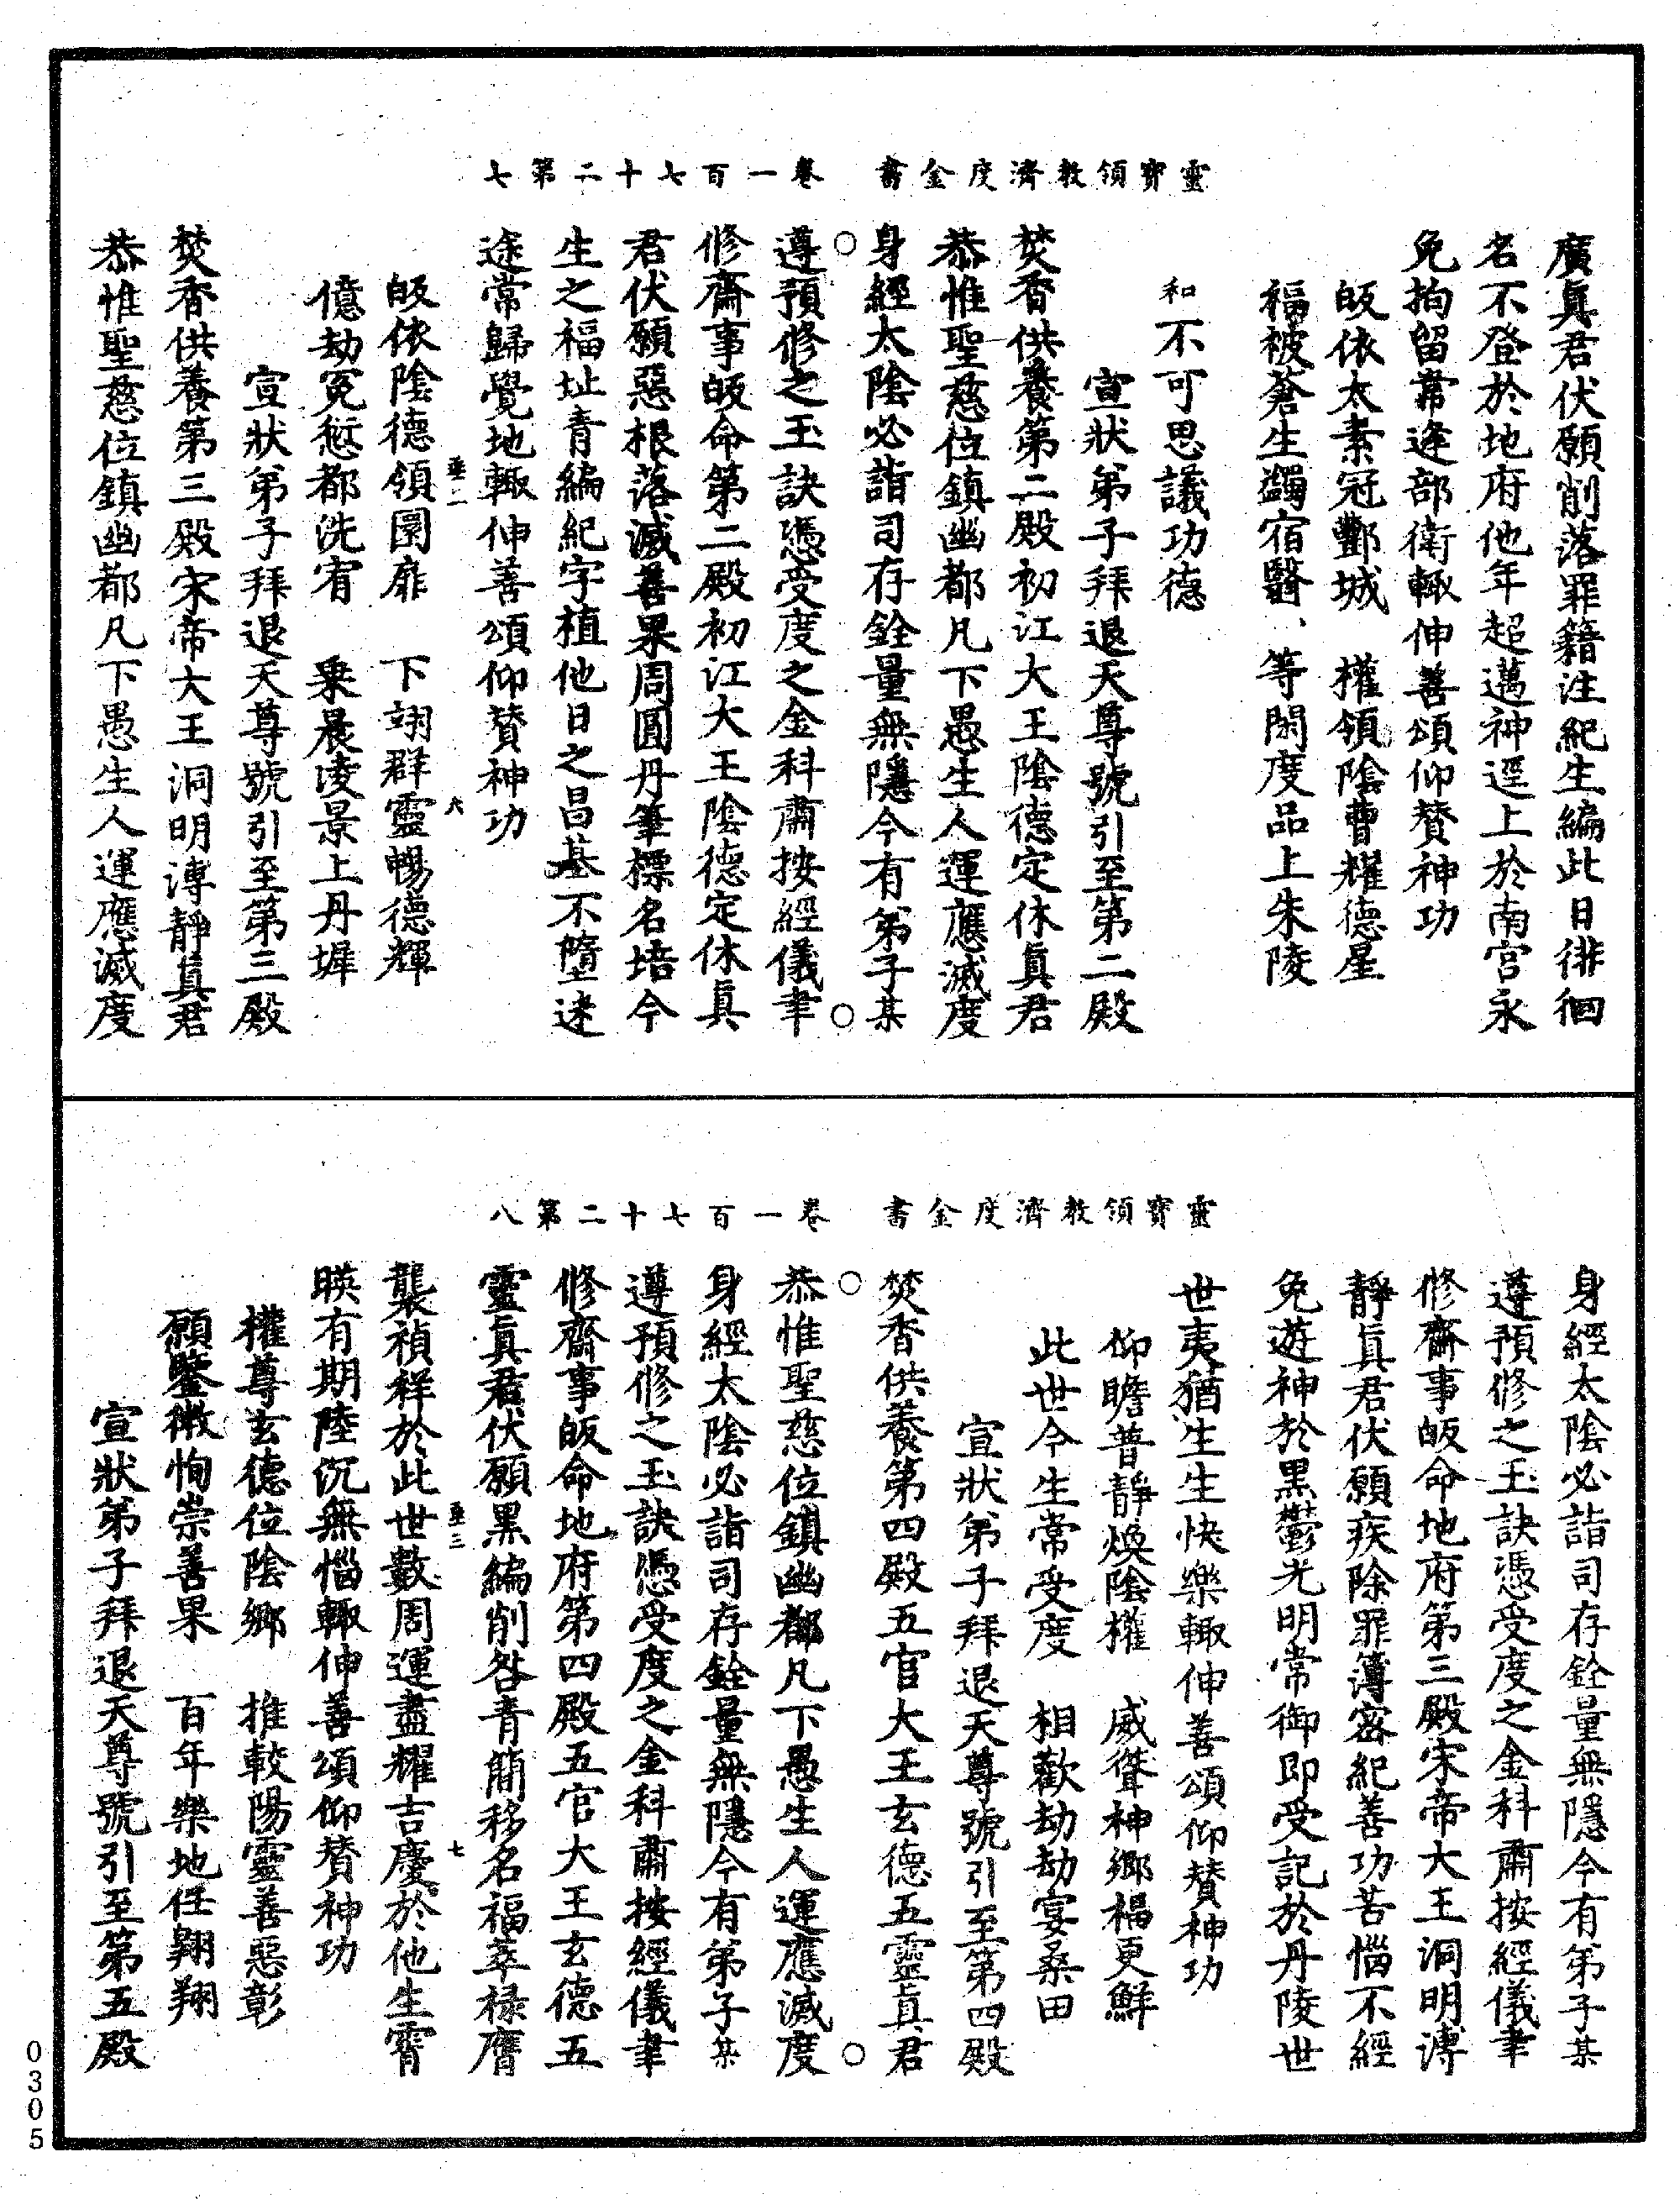 靈寶領教濟度金書　卷一百七十二第七
廣真君伏願削落罪籍注紀生編此日徘徊
名不登於地府他年超邁神逕上於南宮永
免拘留常逢部衛輒伸善頌仰赞神功
皈依太素冠酆城　權領陰曹耀德星
福被蒼生蠲宿醫、等閑度品上朱陵
和不可思議功德
宣狀弟子拜退天尊號引至第二殿
焚香供養第二殿初江大王陰德定休真君
恭惟聖慈位鎮幽都凡下愚生人運應滅度
身經太陰必詣司存銓量無隱今有弟子某
遵預修之玉訣憑受度之金科肅按經儀聿
修齋事皈命第二殿初江大王陰德定休真
君伏願惡根落滅善果周圓丹筆標名培今
生之福址青編紀字植他日之昌基不墮迷
途常歸覺地輒伸善頌仰赞神功
垂二　六
皈依陰德領圜扉　下翊群靈暢德輝
億劫冤愆都洗宥　乘晨凌景上丹墀
宣狀弟子拜退天尊號引至第三殿
焚香供養第三殿宋帝大王洞明溥靜真君
恭惟聖慈位鎮幽都凡下愚生人運應滅度
靈寶領教濟度金書　卷一百七十二第八
身經太陰必詣司存銓量無隱今有弟子某
遵預修之玉訣憑受度之金科肅按經儀聿
修齋事皈命地府第三殿宋帝大王洞明溥
靜真君伏願疾除罪簿密紀善功苦惱不經
免遊神於黑鬱光明常御即受記於丹陵世
世夷猶生生快樂輒伸善頌仰赞神功
仰瞻普靜煥陰權　威聳神鄉福更鮮
此世今生常受度　相歡劫劫宴桑田
宣狀弟子拜退天尊號引至第四殿
焚香供養第四殿五官大王玄德五靈真君
恭惟聖慈位鎮幽都凡下愚生人運應滅度
身經太陰必詣司存銓量無隱今有弟子某
遵預修之玉訣憑受度之金科肅按經儀聿
修齋事皈命地府第四殿五官大王玄德五
靈真君伏願黑編削咎青簡移名福萃祿膺
垂三　七
襲禎祥於此世數周運盡耀吉慶於他生霄
暎有期陸沉無惱輒伸善頌仰赞神功
權尊玄德位陰鄉　推較陽靈善惡彰
願鑒微恂崇善果　百年樂地任翱翔
宣狀弟子拜退天尊號引至第五殿
0305